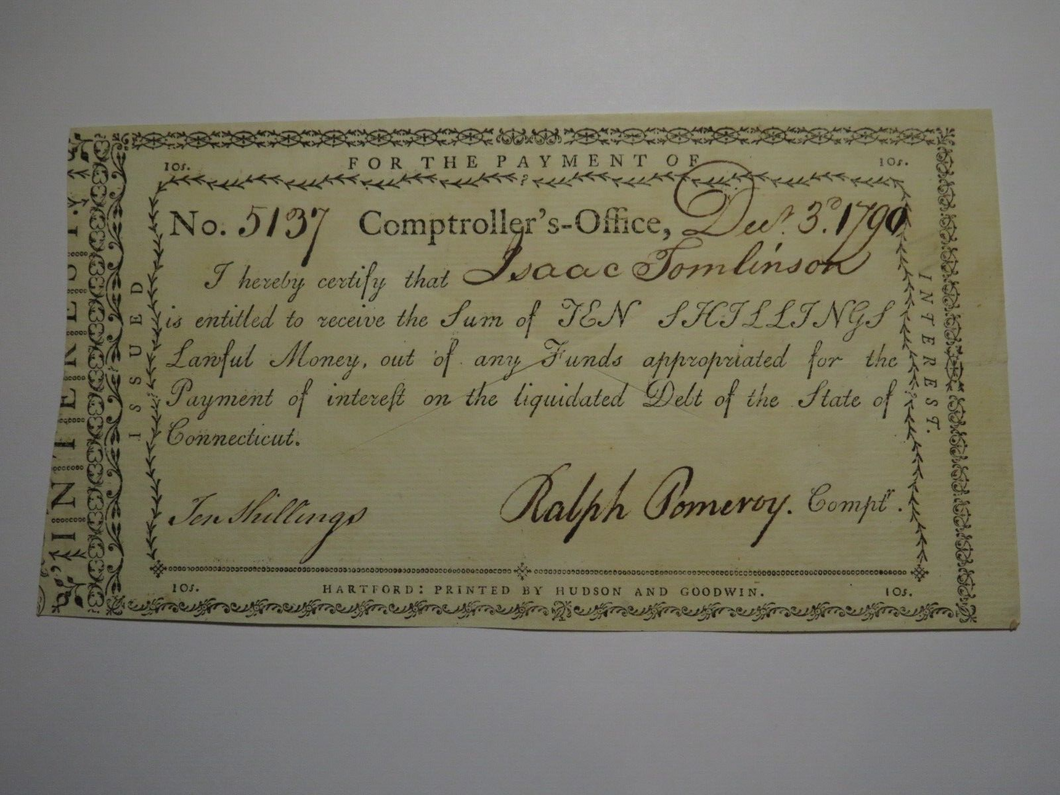 10s. FOR THE PAYMENT OF 10s.
No. 5137 Comptroller's-Office, Decr. 3d. 1790
I hereby certify that Isaac Tomlinson
is entitled to receive the Sum of TEN SHILLINGS
Lawful Money, out of any Funds appropriated for the
Payment of interest on the liquidated Debt of the State of
Connecticut.
Ten Shillings Ralph Pomeroy. Comptr.
10s. HARTFORD: PRINTED BY HUDSON AND GOODWIN. 10s.
ISSUED
INTEREST.
INTEREST.